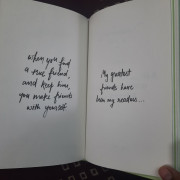 when you find
a true friend,
and keep him,
you make friends
with yourself.
My greatest
friends have
been my readers...